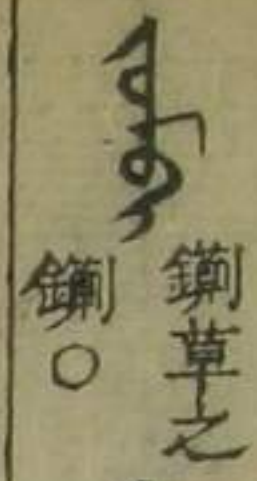 ᠵᠣᡴᡡ
鍘草之
鍘○